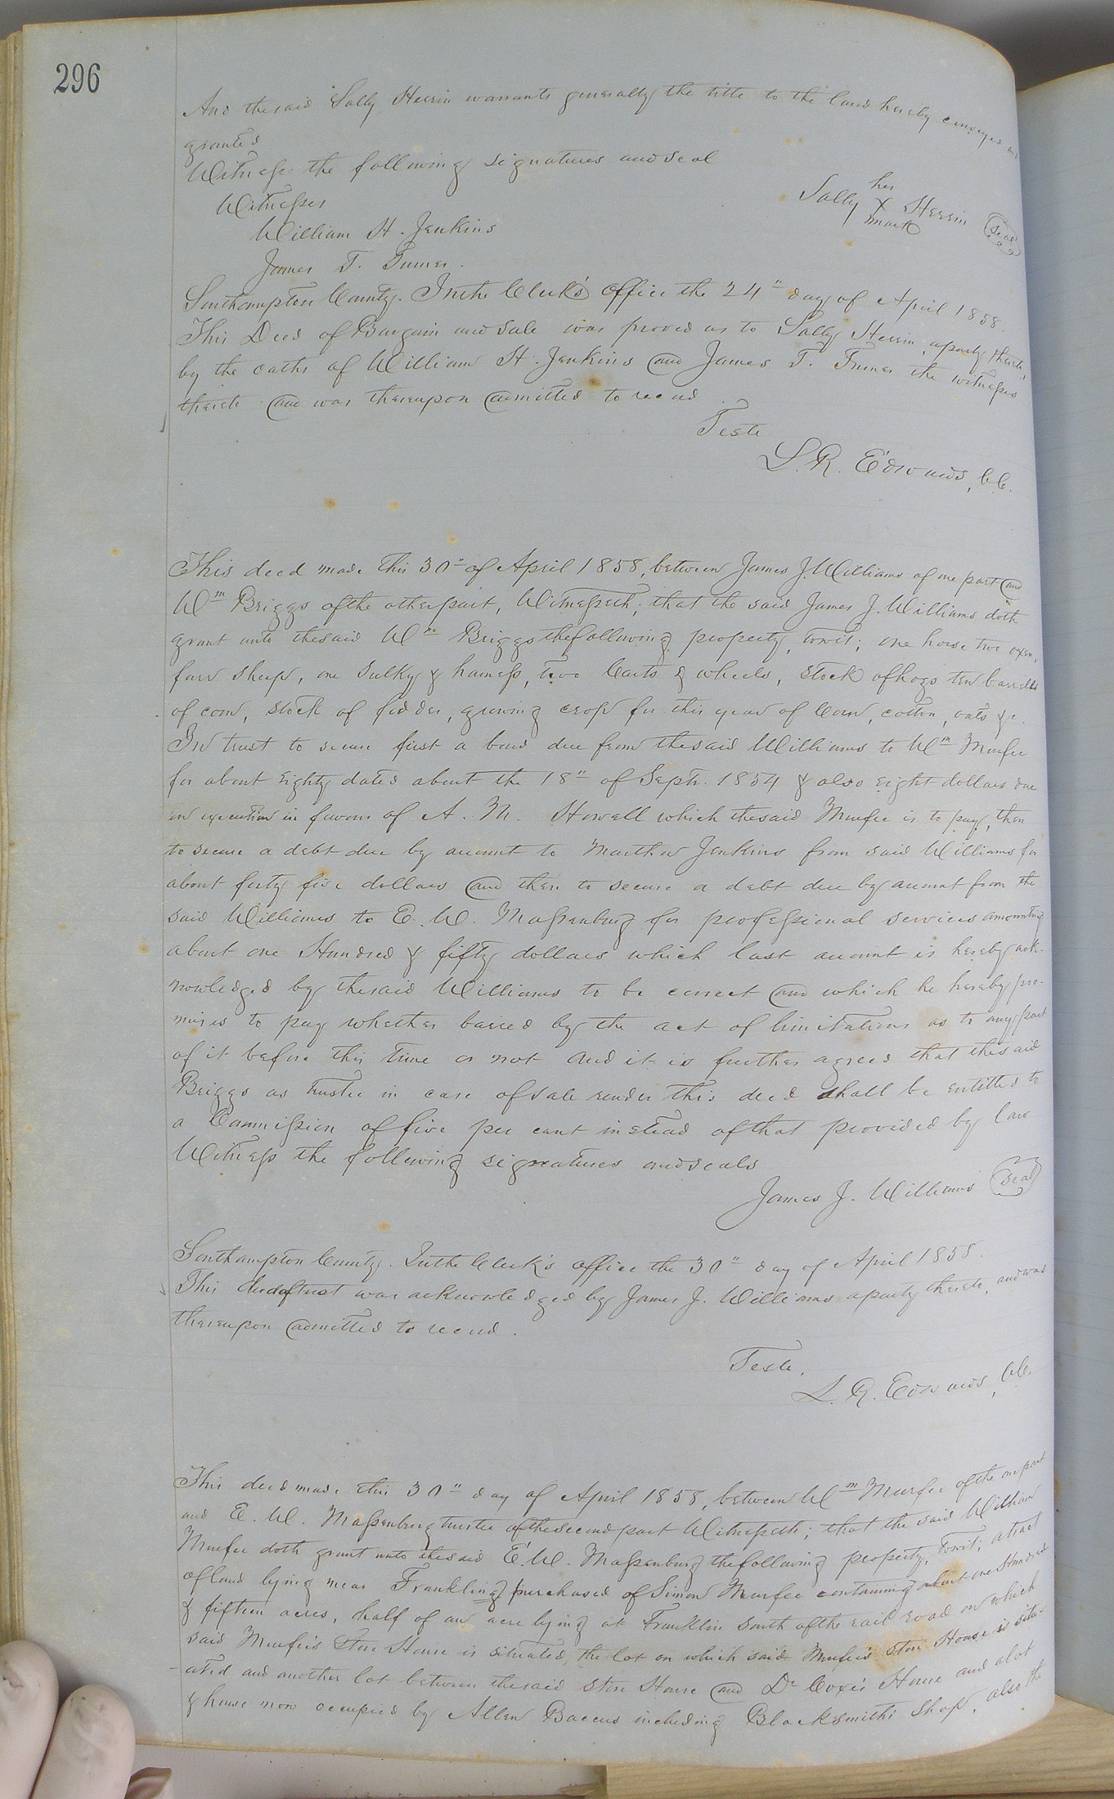 296
And the said Sally Herrin warrants generally the title to the land hereby conveyed and
granted
Witness the following signatures and seal
Witnesses
William H. Jenkins
James T. Turner.
her
Sally X Herrin (seal)
mark
Southampton County. In the Clerk's office the 24" day of April 1858.
This Deed of Bargain and Sale was proved as to Sally Herrin, a party thereto,
by the oaths of William H. Jenkins and James T. Turner the witnesses
thereto and was thereupon admitted to record.
Teste
L. R. Edwards, C.C.
This deed made this 30" of April 1858, between James J. Williams of one part and
Wm Briggs of the other part, Witnesseth; that the said James J. Williams doth
grant unto the said Wm Briggs the following property, towit; one horse two oxen,
four sheep, one Sulky & harness, two Carts & wheels, stock of hogs ten barrells
of corn, stack of fodder, growing crop for this year of Corn, cotton, oats &c.
In trust to secure first a bond due from the said Williams to Wm Murfee
for about eighty dated about the 18" of Sept. 1854 & also eight dollars due
on execution in favour of A. M. Howell which the said Murfee is to pay, then
to secure a debt due by account to Matthew Jenkins from said Williams for
about forty five dollars and then to secure a debt due by account from the
said Williams to E. W. Massenburg for professional services amounting
about one Hundred & fifty dollars which last account is hereby ack-
nowledged by the said Williams to be correct and which he hereby pro-
mises to pay whether barred by the act of limitations as to any part
of it before this time or not and it is further agreed that the said
Briggs as trustee in case of sale under this deed shall be entitled to
a Commission of five per cent instead of that provided by law
Witness the following signatures and seals
James J. Williams (seal)
Southampton County. In the Clerk's office the 30" day of April 1858.
This deed of trust was acknowledged by James J. Williams a party thereto, and was
thereupon admitted to record.
Teste,
L. R. Edwards, C.C.
This deed made this 30" day of April 1858, between Wm Murfee of the one part
and E. W. Massenburg trustee of the second part Witnesseth; that the said William
Murfee doth grant unto the said E. W. Massenburg the following property, towit; a tract
of land lying near Franklin & purchased of Simon Murfee containing about one Hundred
& fifteen acres, half of an acre lying at Franklin south of the rail road on which
said Murfee's Store House is situated, the lot on which said Murfee's store House is situ-
ated and another lot between the said Store House and Dr Coxe's House and a lot
& house now occupied by Allen Baccus including Blacksmiths Shop, also the